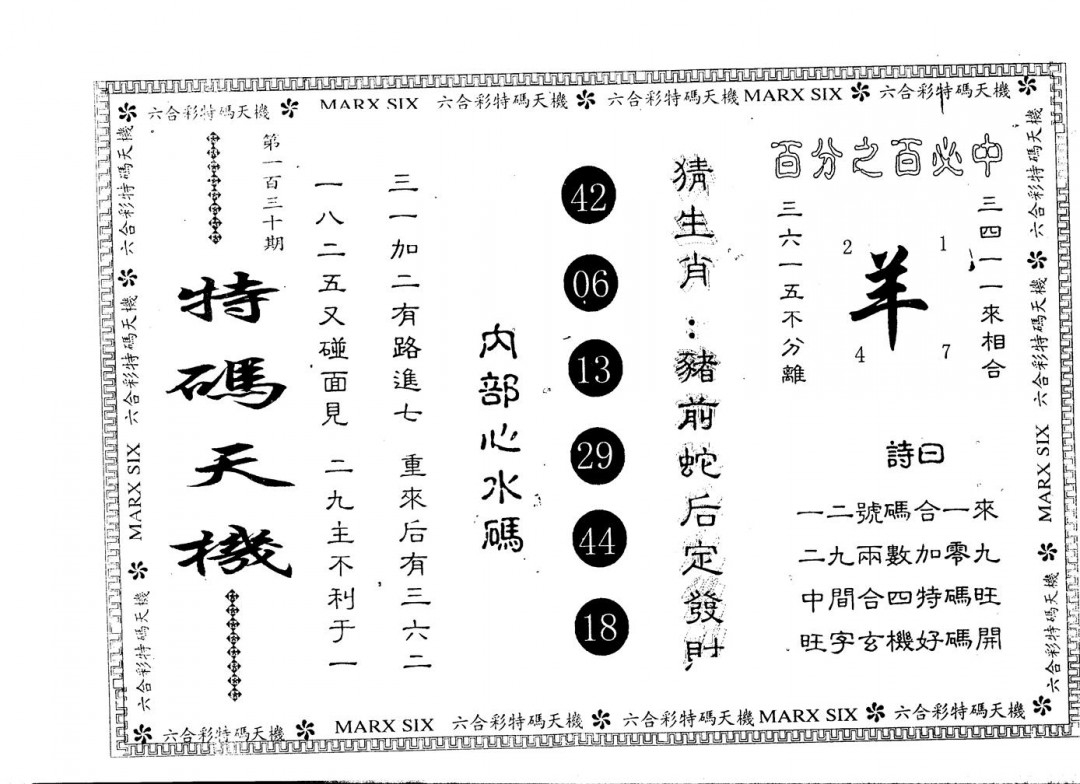 六合彩特碼天機 MARX SIX 六合彩特碼天機 六合彩特碼天機 MARX SIX 六合彩特碼天機
百分之百必中
三四一一來相合
1
2
羊
4
7
三六一五不分離
詩曰
一二號碼合一來
二九兩數加零九
中間合四特碼旺
旺字玄機好碼開
猜生肖：豬前蛇后定發財
42
06
13
29
44
18
内部心水碼
三一加二有路進七 重來后有三六二
一八二五又碰面見 二九主不利于一
第一百三十期
特碼天機
六合彩特碼天機 六合彩特碼天機 MARX SIX 六合彩特碼天機
六合彩特碼天機 六合彩特碼天機 MARX SIX 六合彩特碼天機
六合彩特碼天機 MARX SIX 六合彩特碼天機 六合彩特碼天機 MARX SIX 六合彩特碼天機